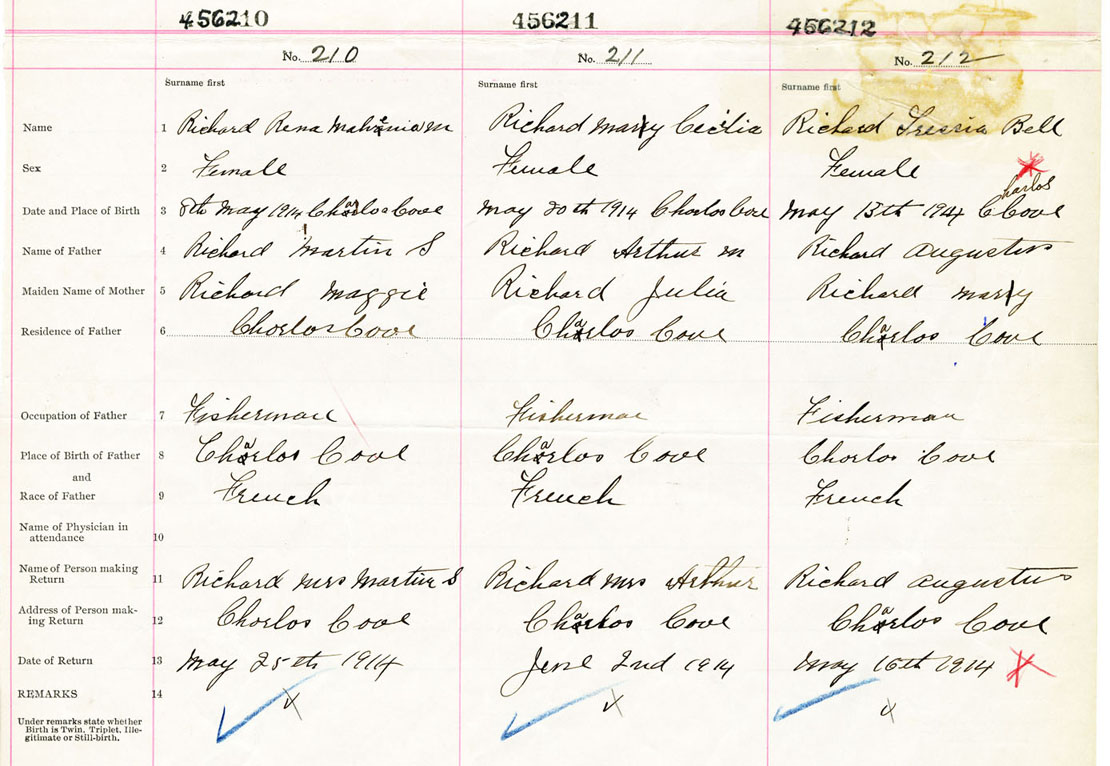 456210 456211 456212
No. 210 No. 211 No. 212
Surname first Surname first Surname first
Name 1 Richard Rena M Richard Mary Cecilia Richard Bell
Sex 2 Female Female Female
Date and Place of Birth 3 8th May 1914 Charlos Cove May 20th 1914 Charlos Cove May 13th 1914 Charlos Cove
Name of Father 4 Richard Martin S Richard Arthur M Richard Augustus
Maiden Name of Mother 5 Richard Maggie Richard Julia Richard Mary
Residence of Father 6 Chorlos Cove Charlos Cove Charlos Cove
Occupation of Father 7 Fisherman Fisherman Fisherman
Place of Birth of Father 8 Charlos Cove Charlos Cove Chorlos Cove
and
Race of Father 9 French French French
Name of Physician in
attendance 10
Name of Person making
Return 11 Richard Mrs Martin S Richard Mrs Arthur Richard Augustus
Address of Person mak-
ing Return 12 Chorlos Cove Charlos Cove Charlos Cove
Date of Return 13 May 25th 1914 June 2nd 1914 May 16th 1914
REMARKS 14
Under remarks state whether
Birth is Twin, Triplet, Ille-
gitimate or Still-birth.